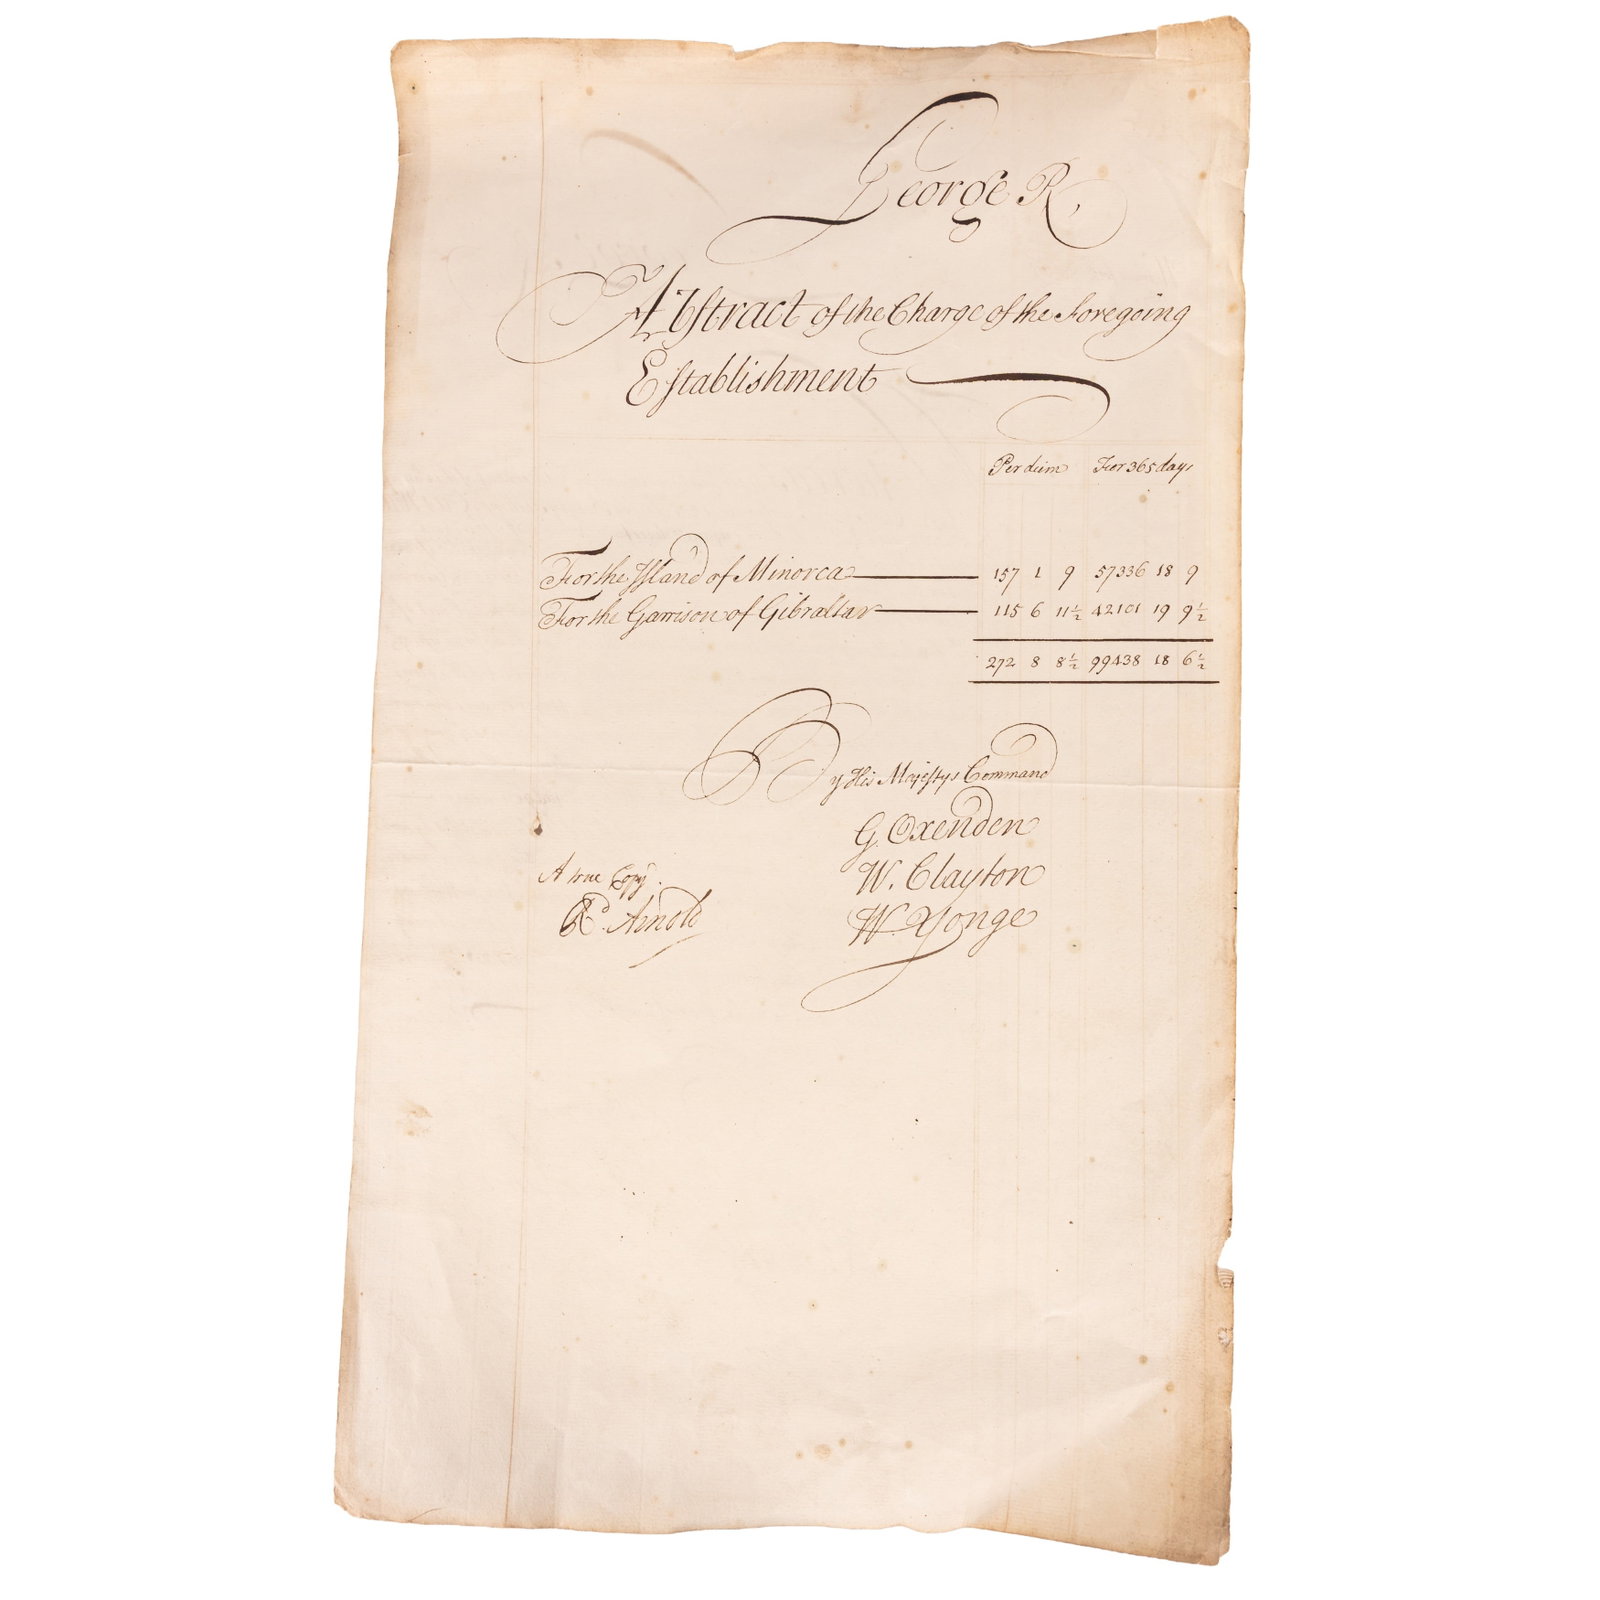 George R,
Abstract of the Charge of the Foregoing
Establishment
Per diem For 365 days
For the Island of Minorca 157 1 9 57336 18 9
For the Garrison of Gibraltar 115 6 11½ 42101 19 9½
272 8 8½ 99438 18 6½
By His Majestys Command
G. Oxenden
W. Clayton
W. Yonge
A true Copy.
Rd. Arnold